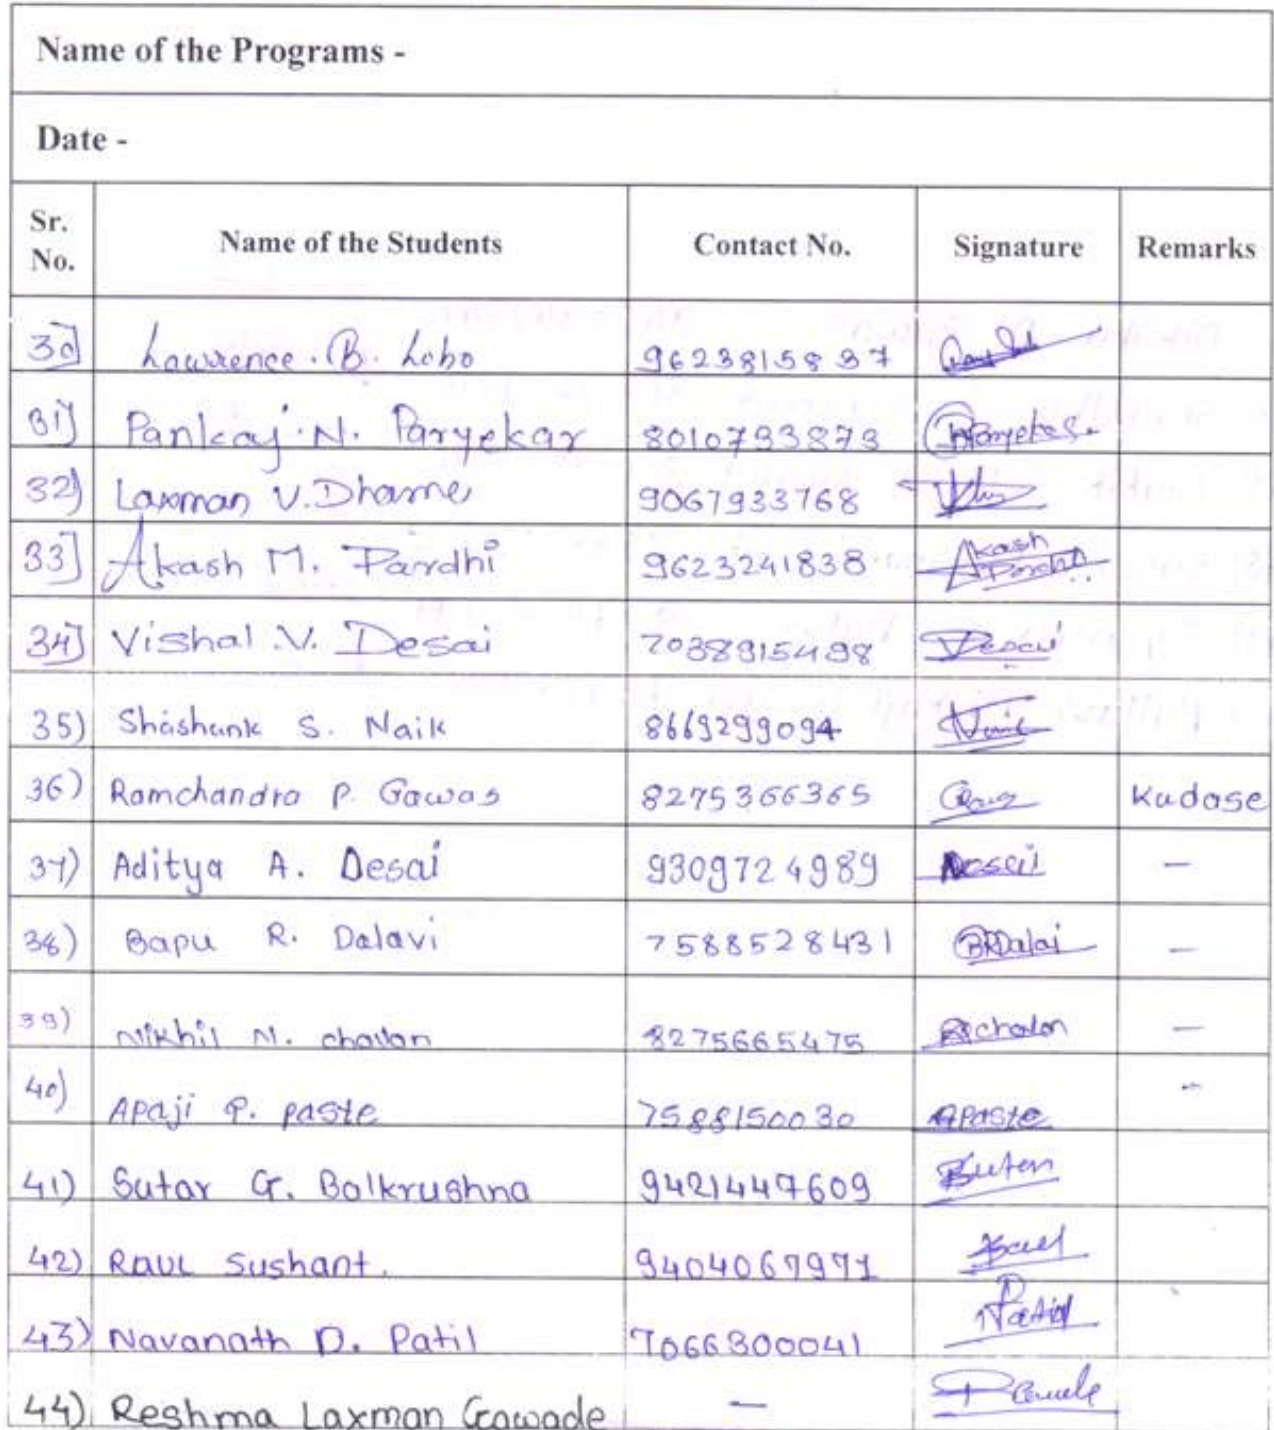 Name of the Programs -
Date -
Sr. No. Name of the Students Contact No. Signature Remarks
30] Lawrence. B. Lobo 9623815837
31) Pankaj. N. Paryekar 8010793873 Paryekar.
32) Laxman V. Dhame 9067933768
33] Akash M. Pardhi 9623241838 Akash Pardhi
34] Vishal .V. Desai 7038915498 Desai
35) Shashank S. Naik 8669299094 Naik
36) Ramchandra P. Gawas 8275366365 Kudase
37) Aditya A. Desai 9309724989 Desai -
38) Bapu R. Dalavi 7588528431 BRDalai -
39) Nikhil N. chavan 8275665475 -
40) Apaji P. paste 7588150030 APaste -
41) Sutar G. Balkrushna 9421447609 Sutar
42) Raul Sushant. 9404067971 Raul
43) Navanath D. Patil 7066300041 Patil
44) Reshma Laxman Gawade -